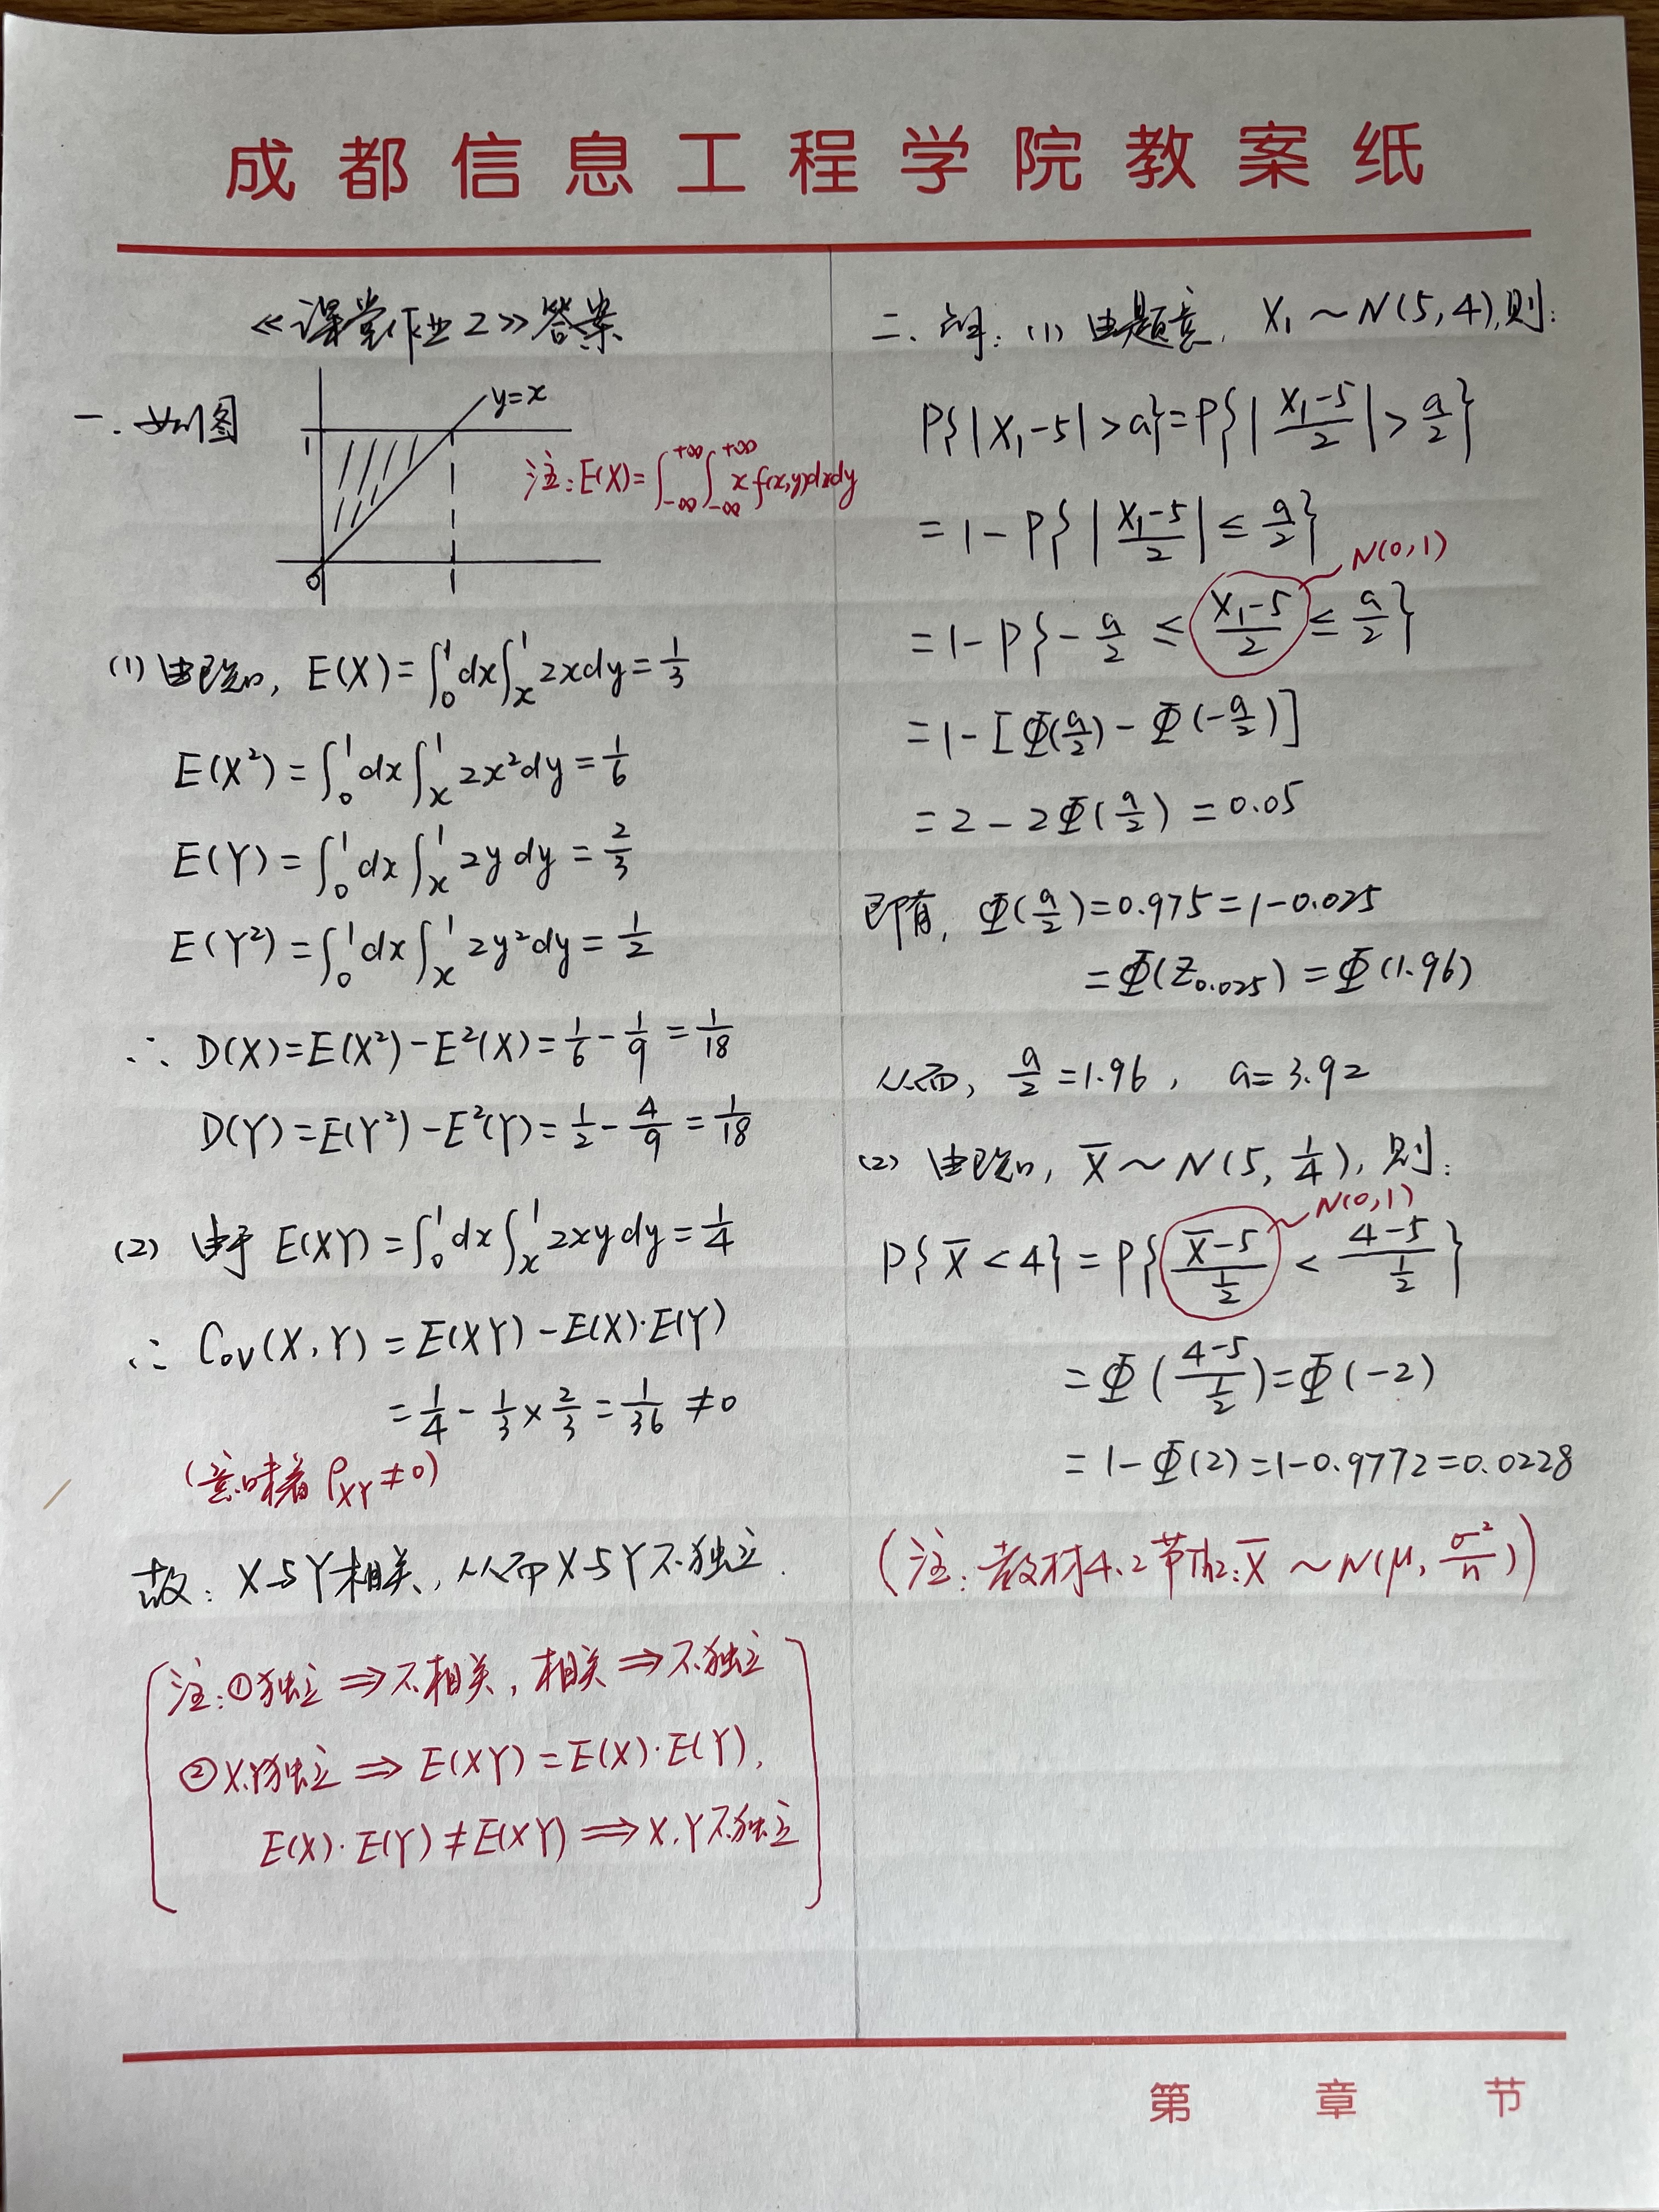 成都信息工程学院教案纸
《课堂作业2》答案
一. 如图
y=x
1
0
1
注: E(X)=∫_{-∞}^{+∞}∫_{-∞}^{+∞} x f(x,y)dxdy
(1) 由已知, E(X)=∫_0^1 dx∫_x^1 2xdy=1/3
E(X²)=∫_0^1 dx∫_x^1 2x²dy=1/6
E(Y)=∫_0^1 dx∫_x^1 2y dy=2/3
E(Y²)=∫_0^1 dx∫_x^1 2y²dy=1/2
∴ D(X)=E(X²)-E²(X)=1/6-1/9=1/18
D(Y)=E(Y²)-E²(Y)=1/2-4/9=1/18
(2) 由于 E(XY)=∫_0^1 dx∫_x^1 2xy dy=1/4
∴ Cov(X,Y)=E(XY)-E(X)·E(Y)
=1/4-1/3×2/3=1/36≠0
(意味着 ρ_{XY}≠0)
故: X与Y相关, 从而X与Y不独立.
注:①独立⇒不相关, 相关⇒不独立
②X,Y独立⇒E(XY)=E(X)·E(Y),
E(X)·E(Y)≠E(XY)⇒X,Y不独立
二. 解: (1) 由题意, X₁~N(5,4),则:
P{|X₁-5|>a}=P{|(X₁-5)/2|>a/2}
=1-P{|(X₁-5)/2|≤a/2}
N(0,1)
=1-P{-a/2≤(X₁-5)/2≤a/2}
=1-[Φ(a/2)-Φ(-a/2)]
=2-2Φ(a/2)=0.05
即有, Φ(a/2)=0.975=1-0.025
=Φ(Z_{0.025})=Φ(1.96)
从而, a/2=1.96, a=3.92
(2) 由已知, X̄~N(5,1/4), 则:
N(0,1)
P{X̄<4}=P{(X̄-5)/(1/2)<(4-5)/(1/2)}
=Φ((4-5)/(1/2))=Φ(-2)
=1-Φ(2)=1-0.9772=0.0228
(注: 教材4.2节 X̄~N(μ,σ²/n))
第 章 节